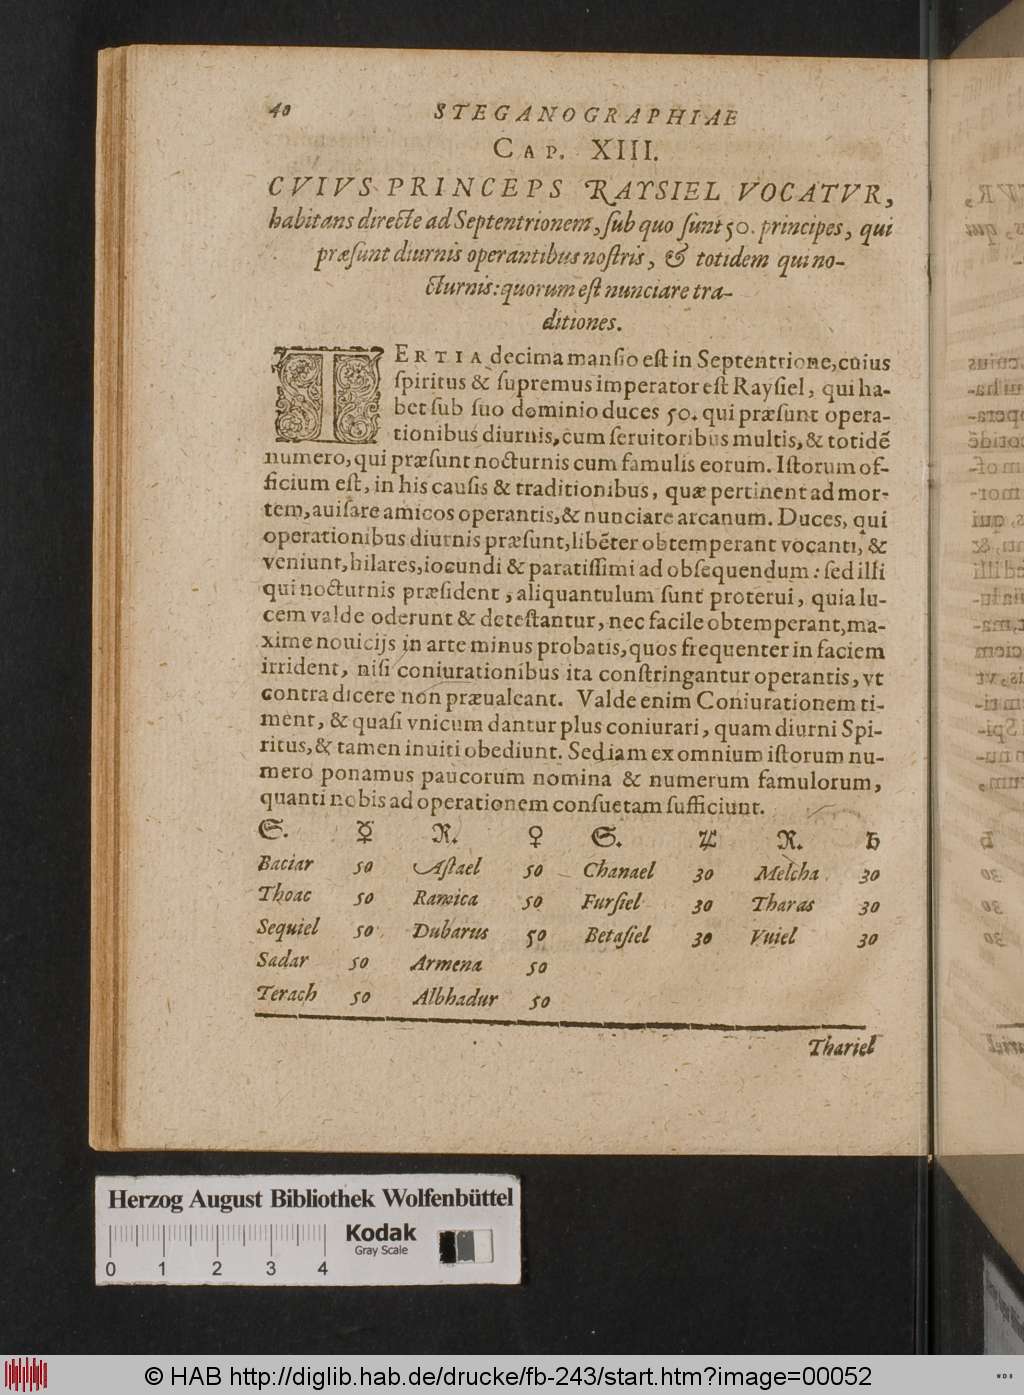 40 STEGANOGRAPHIAE
CAP. XIII.
CVIVS PRINCEPS RAYSIEL VOCATVR,
habitans directe ad Septentrionem, sub quo sunt 50. principes, qui
præsunt diurnis operantibus nostris, & totidem qui no-
cturnis: quorum est nunciare tra-
ditiones.
TERTIA decima mansio est in Septentrione, cuius
spiritus & supremus imperator est Raysiel, qui ha-
bet sub suo dominio duces 50. qui præsunt opera-
tionibus diurnis, cum seruitoribus multis, & totidē
numero, qui præsunt nocturnis cum famulis eorum. Istorum of-
ficium est, in his causis & traditionibus, quæ pertinent ad mor-
tem, auisare amicos operantis, & nunciare arcanum. Duces, qui
operationibus diurnis præsunt, libēter obtemperant vocanti, &
veniunt, hilares, iocundi & paratissimi ad obsequendum: sed illi
qui nocturnis præsident, aliquantulum sunt proterui, quia lu-
cem valde oderunt & detestantur, nec facile obtemperant, ma-
xime nouicijs in arte minus probatis, quos frequenter in faciem
irrident, nisi coniurationibus ita constringantur operantis, vt
contradicere non præualeant. Valde enim Coniurationem ti-
ment, & quasi vnicum dantur plus coniurari, quam diurni Spi-
ritus, & tamen inuiti obediunt. Sed iam ex omnium istorum nu-
mero ponamus paucorum nomina & numerum famulorum,
quanti nobis ad operationem consuetam sufficiunt.
S. ☿ R. ♀ S. ♃ R. ♄
Baciar 50 Astael 50 Chanael 30 Melcha 30
Thoac 50 Ramica 50 Fursiel 30 Tharas 30
Sequiel 50 Dubarus 50 Betasiel 30 Vuiel 30
Sadar 50 Armena 50
Terach 50 Albhadur 50
Thariel
Herzog August Bibliothek Wolfenbüttel
Kodak
Gray Scale
0 1 2 3 4
© HAB http://diglib.hab.de/drucke/fb-243/start.htm?image=00052